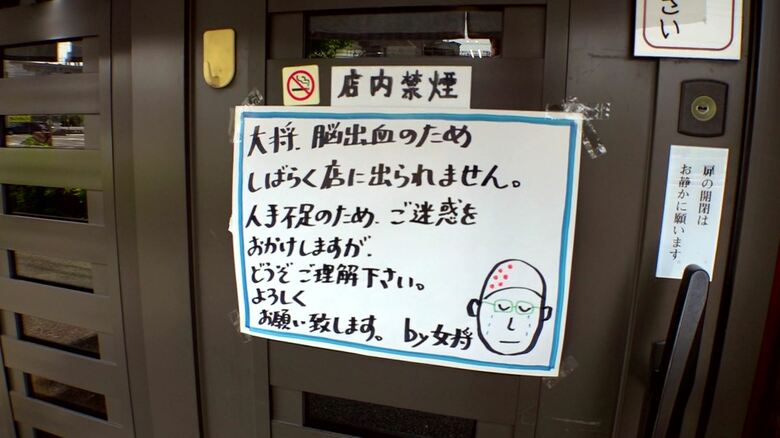 さい
店内禁煙
大将、脳出血のため
しばらく店に出られません。
人手不足のため、ご迷惑を
おかけしますが、
どうぞご理解下さい。
よろしく
お願い致します。 by女将
扉の開閉は
お静かに願います。